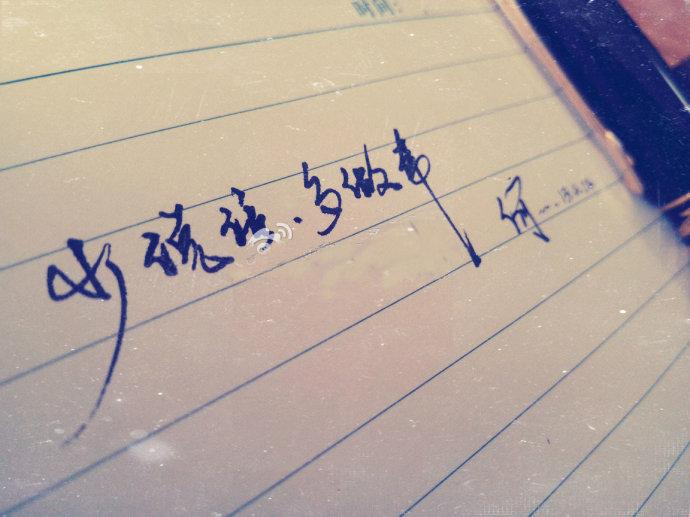 时间:
少说话.多做事 何